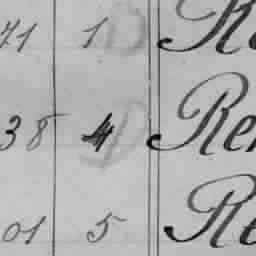 71 1 Re
38 4 Rei
01 5 Re